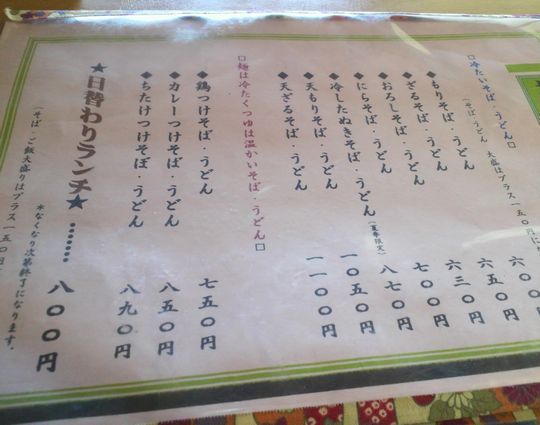 □冷たいそば・うどん□
(そば・うどん 大盛はプラス一五〇円に
◆もりそば・うどん 六〇〇
◆ざるそば・うどん 六五〇円
◆おろしそば・うどん 六三〇円
◆にらそば・うどん 七〇〇円
◆冷したぬきそば・うどん(夏季限定) 八七〇円
◆天もりそば・うどん 一〇五〇円
◆天ざるそば・うどん 一一〇〇円
□麺は冷たくつゆは温かいそば・うどん□
◆鶏つけそば・うどん 七五〇円
◆カレーつけそば・うどん 八五〇円
◆ちたけつけそば・うどん 八九〇円
★日替わりランチ★……… 八〇〇円
*なくなり次第終了になります。
(そば・ご飯大盛りはプラス一五〇円